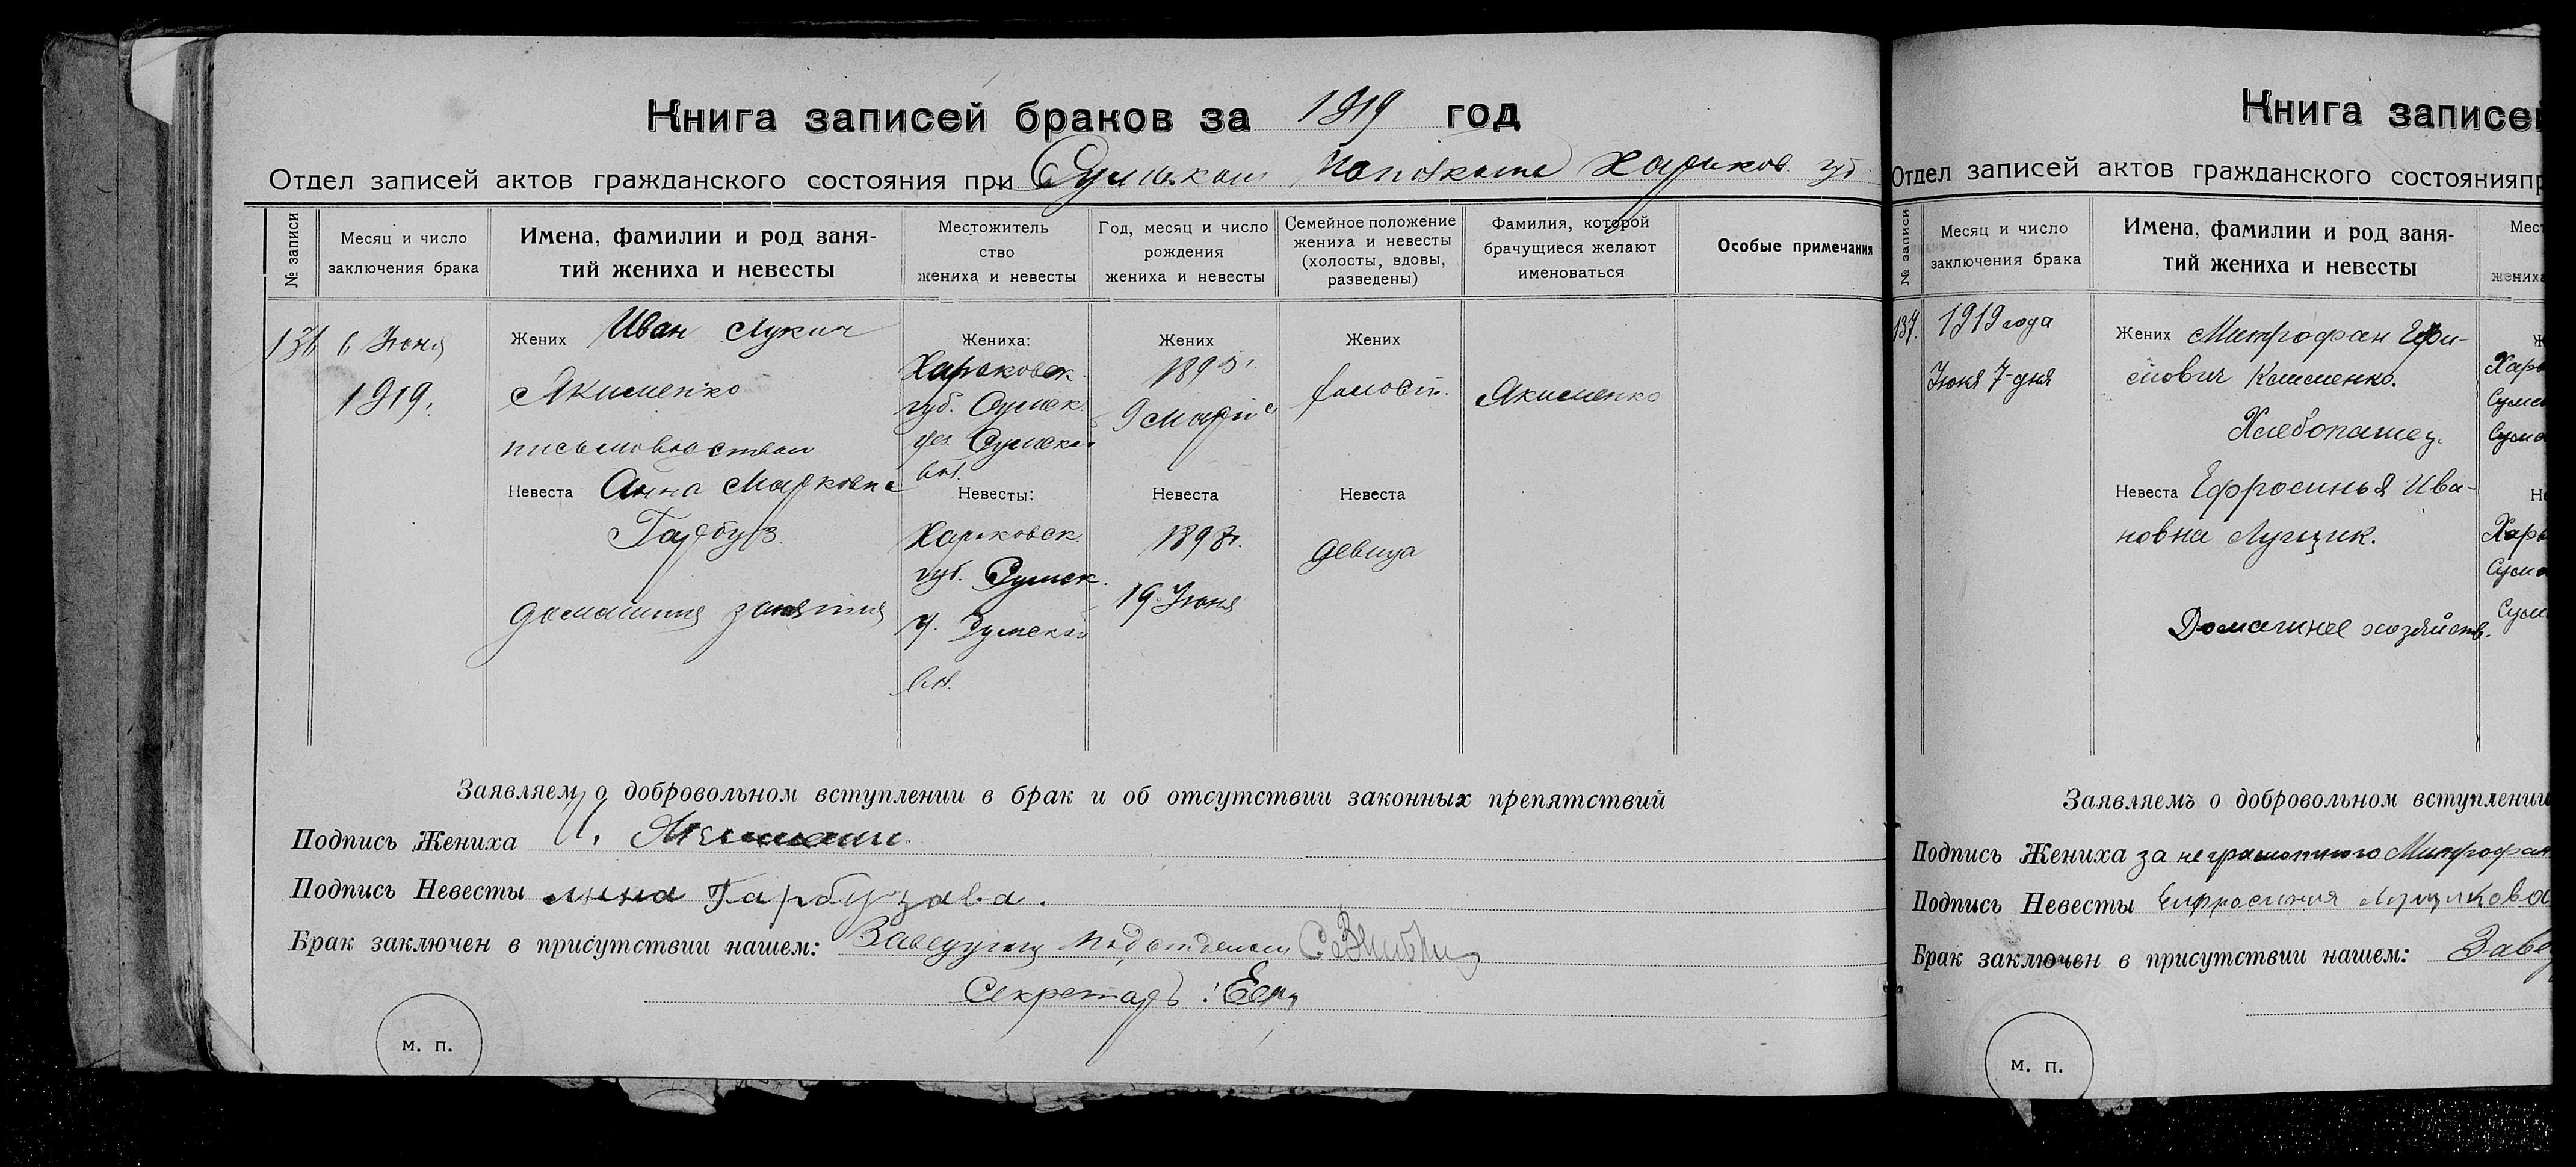 Книга записей браков за 1919 год
Отдел записей актов гражданского состояния при Сумском Исполкоме Харьков. губ
№ записи
Месяц и число
заключения брака
Имена, фамилии и род заня-
тий жениха и невесты
Местожитель
ство
жениха и невесты
Год, месяц и число
рождения
жениха и невесты
Семейное положение
жениха и невесты
(холосты, вдовы,
разведены)
Фамилия, которой
брачущиеся желают
именоваться
Особые примечания
6 Июня
1919.
Жених Иван Лукич
Якименко
письмоводством
Невеста Анна Марковна
Гарбуз
домашния занятия
Жениха:
Харьковск.
губ. Сумск.
уез. Сумской
вол.
Невесты:
Харьковск.
губ. Сумск.
у. Сумской
вол.
Жених
1895 г.
9 марта
Невеста
1898 г.
19 Июня
Жених
холост.
Невеста
девица
Якименко
Заявляем о добровольном вступлении в брак и об отсутствии законных препятствий
Подпись Жениха И. Якименко
Подпись Невесты Анна Гарбузова.
Брак заключен в присутствии нашем: Заведущий подотделом
Секретарь:
м. п.
Книга записей
Отдел записей актов гражданского состоянияпр
№ записи
Месяц и число
заключения брака
Имена, фамилии и род заня-
тий жениха и невесты
Мест
жениха
137.
1919 года
Июня 7-дня
Жених Митрофан Ефи-
мович Клименко.
Хлебопашец.
Невеста Ефросинья Ива-
новна Лущик.
Домашнее хозяйств.
Ж
Харь
Сумс
Сумс
Не
Харь
Сумс
Сумс
Заявляемъ о добровольном вступлении
Подпись Жениха за неграмотного Митрофан
Подпись Невесты Ефросиния
Брак заключен в присутствии нашем: Завед
м. п.